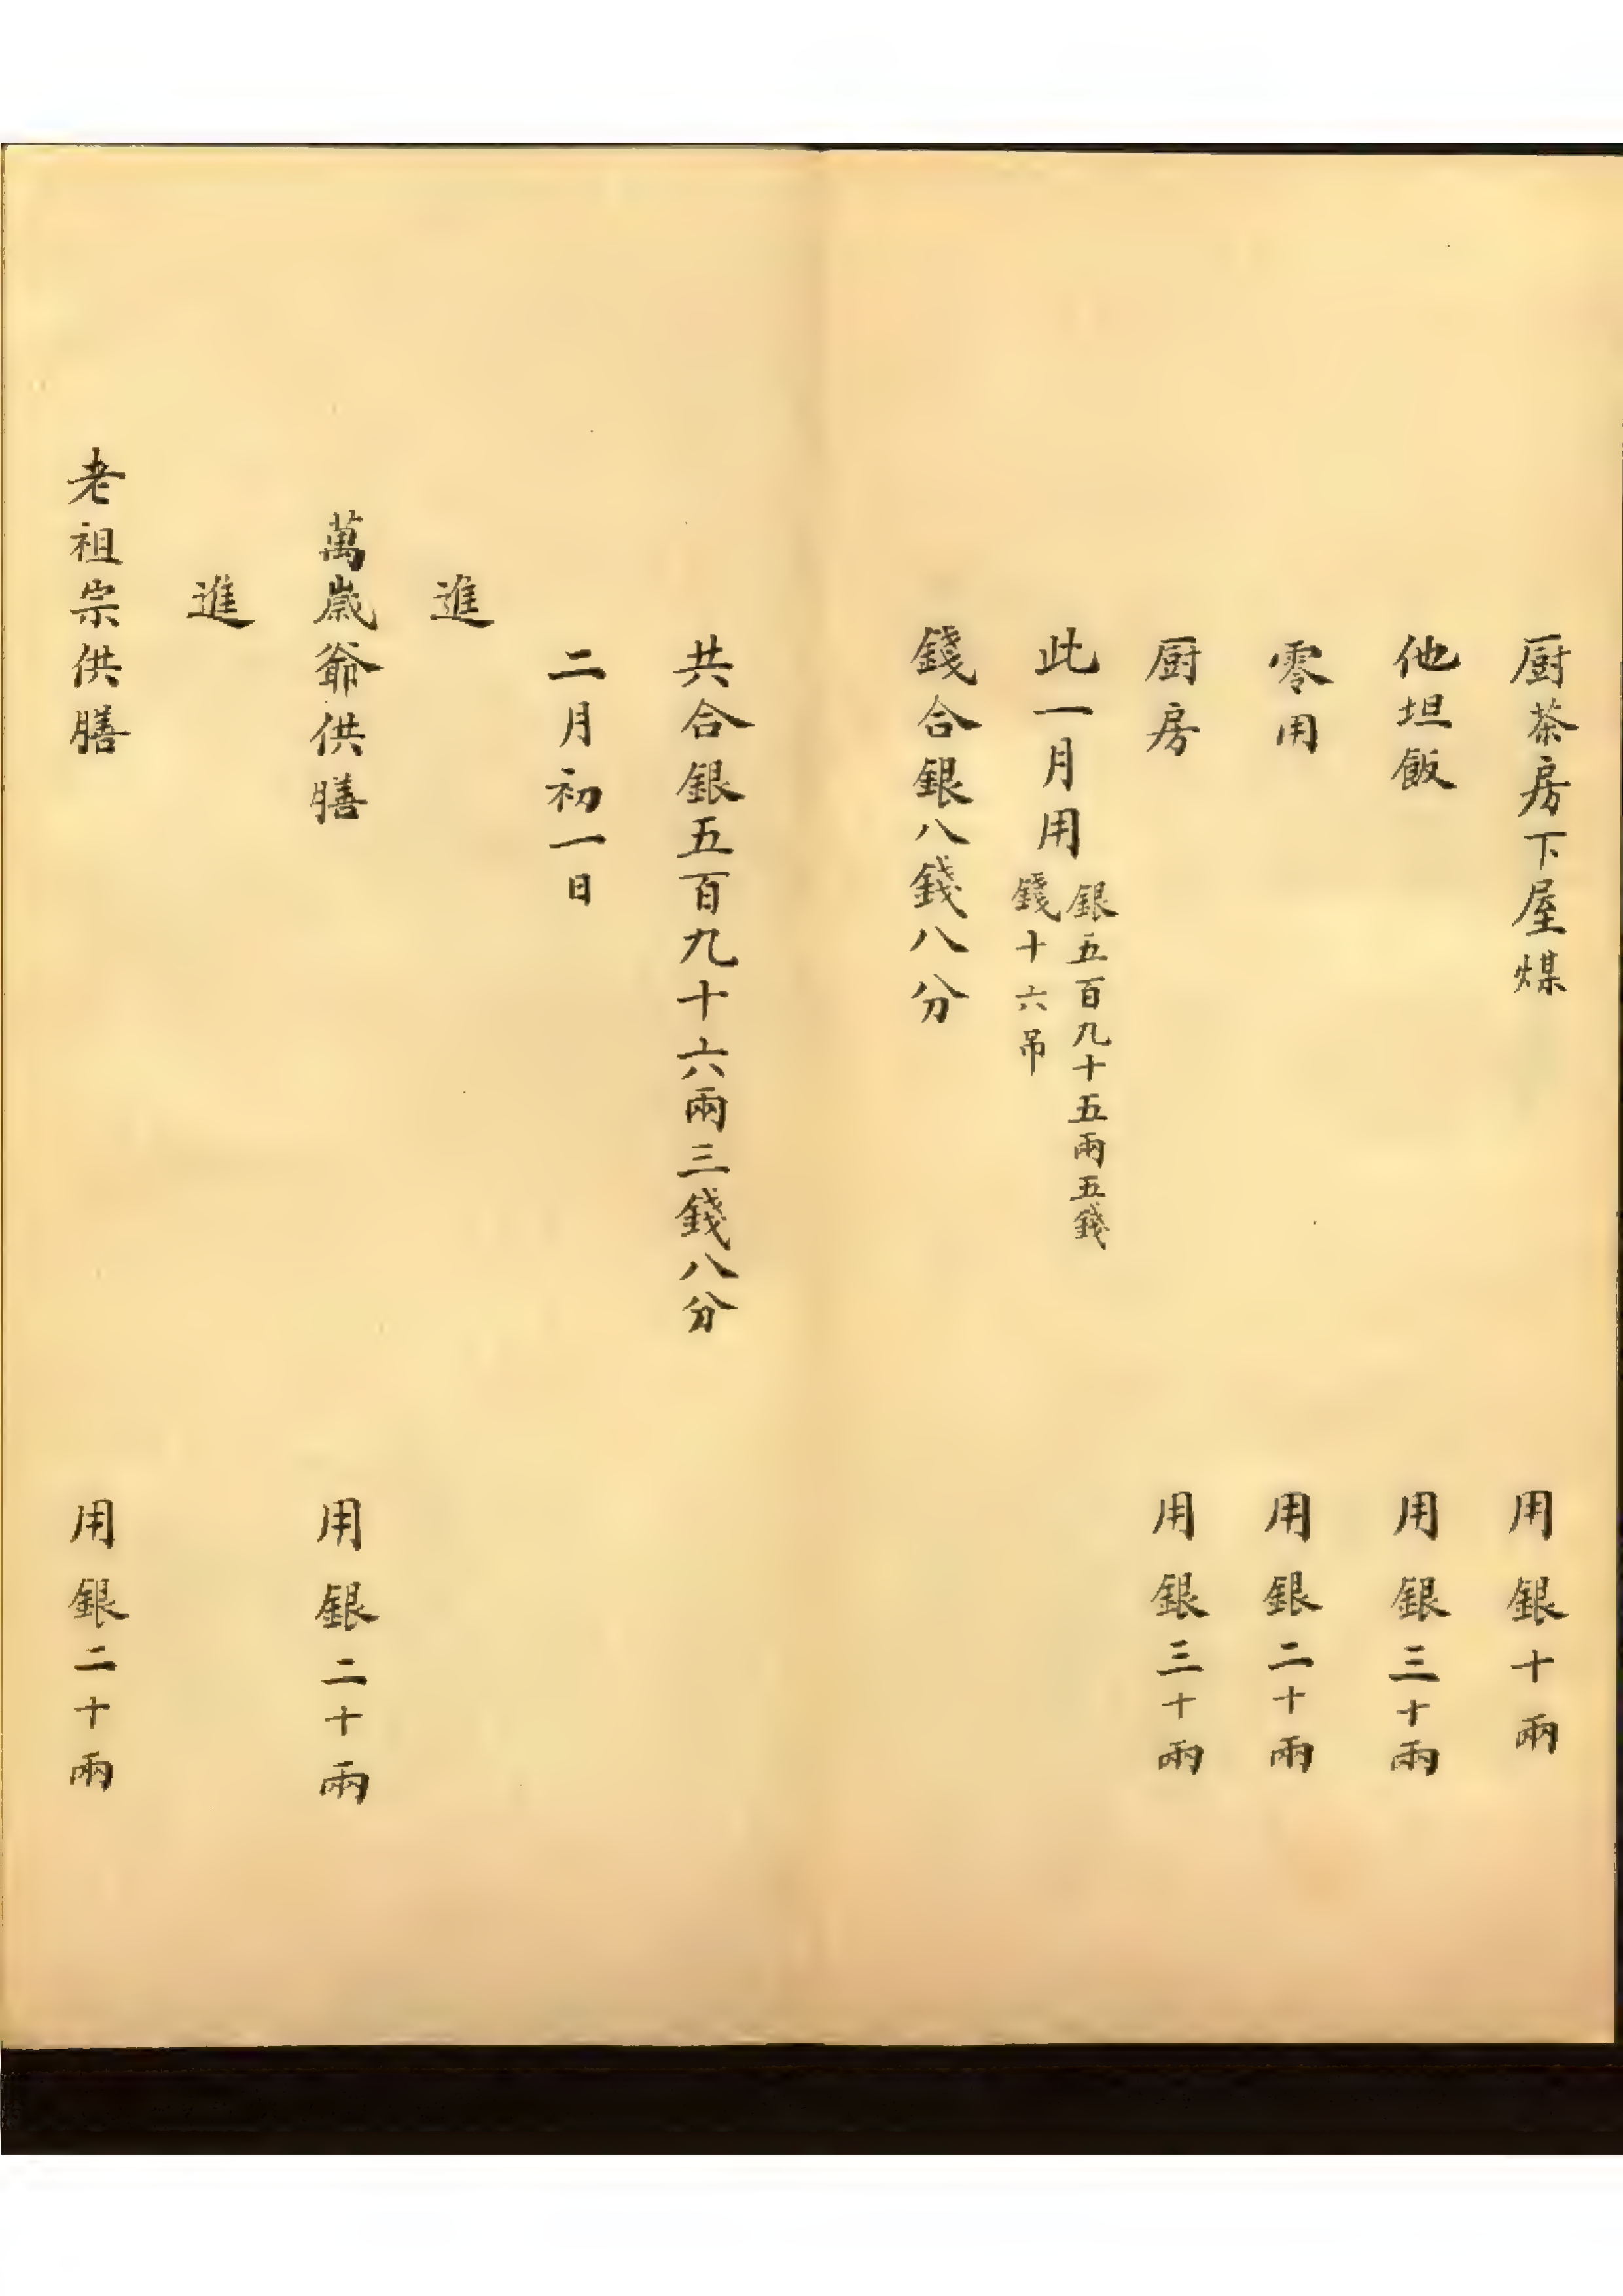 厨茶房下屋煤 用銀十兩
他坦飯 用銀三十兩
零用 用銀二十兩
厨房 用銀三十兩
此一月用 銀五百九十五兩五錢
錢十六吊
錢合銀八錢八分
共合銀五百九十六兩三錢八分
二月初一日
進
萬歲爺供膳 用銀二十兩
進
老祖宗供膳 用銀二十兩